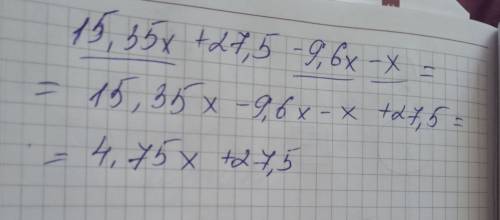 15,35x +27,5 -9,6x -x =
= 15,35x -9,6x - x +27,5 =
= 4,75x +27,5